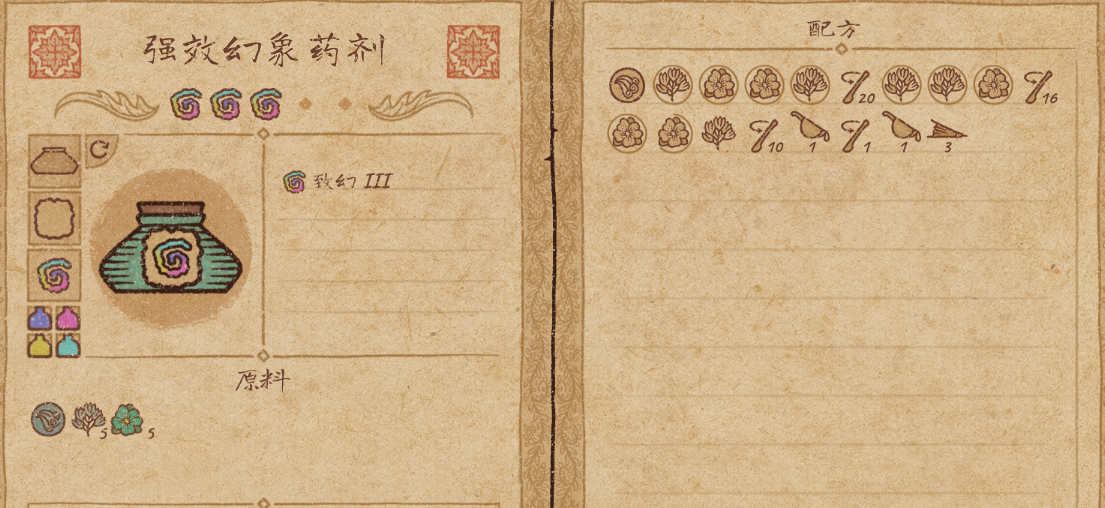 强效幻象药剂
致幻 III
原料
5 5
配方
20 16
10 1 1 1 3